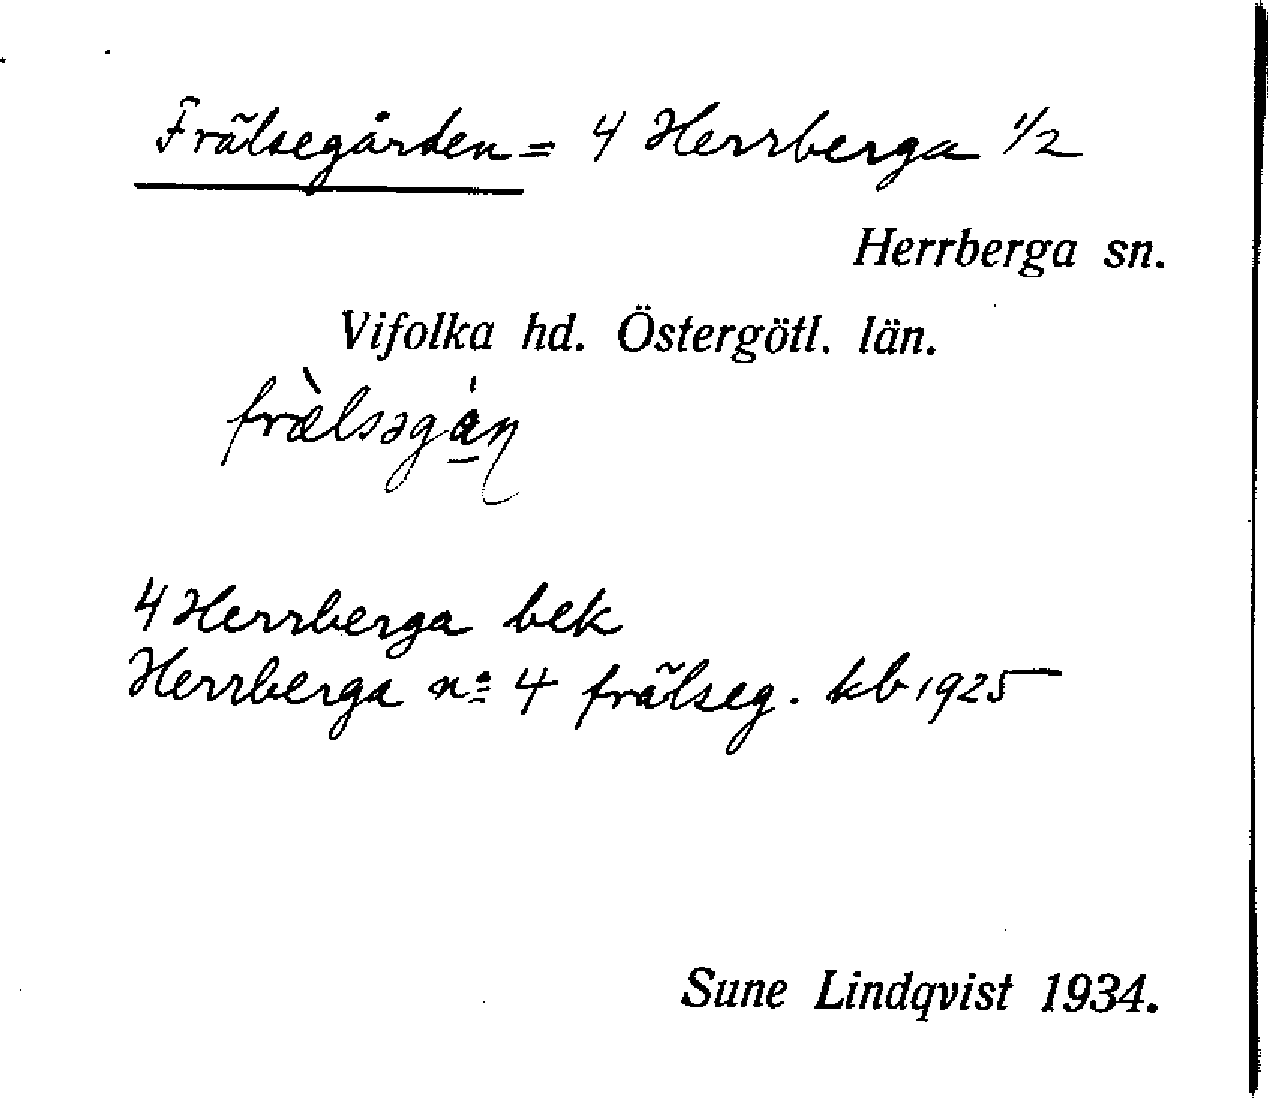 Frälsegården = 4 Herrberga 1/2
Herrberga sn.
Vifolka hd. Östergötl. län.
fræ̀lsəgáɳ
4 Herrberga bek
Herrberga no 4 frälseg. kb 1925
Sune Lindqvist 1934.